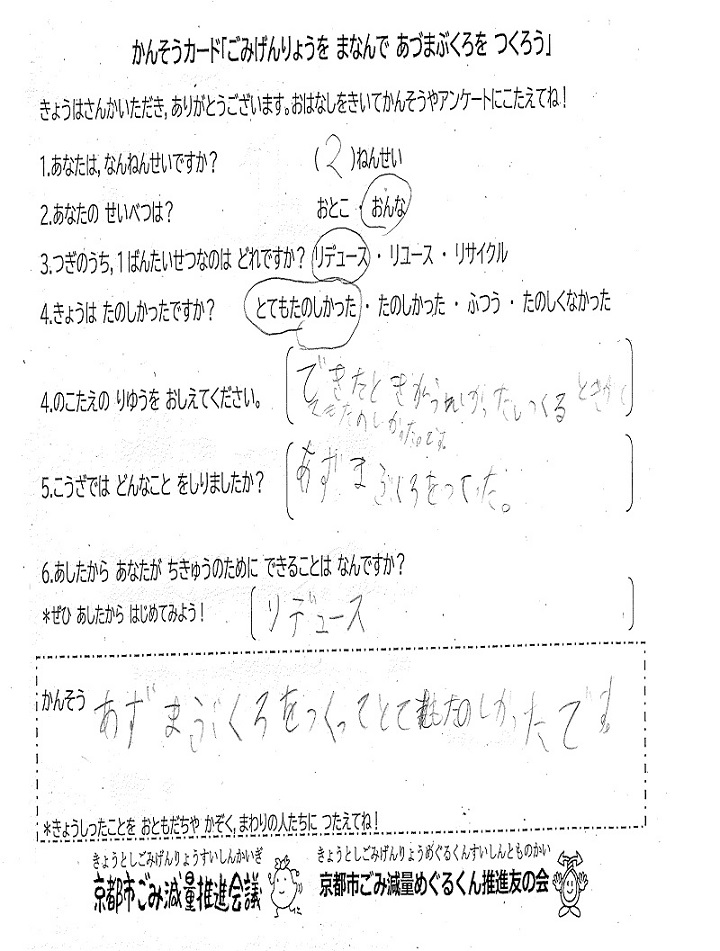 かんそうカード「ごみげんりょうを まなんで あづまぶくろを つくろう」
きょうはさんかいただき,ありがとうございます。おはなしをきいてかんそうやアンケートにこたえてね!
1.あなたは,なんねんせいですか? (2)ねんせい
2.あなたの せいべつは? おとこ ・ おんな
3.つぎのうち,1ばんたいせつなのは どれですか? リデュース ・ リユース ・ リサイクル
4.きょうは たのしかったですか? とてもたのしかった ・ たのしかった ・ ふつう ・ たのしくなかった
4.のこたえの りゆうを おしえてください。
できたときがうれしかったしつくるときが
たのしかったです
5.こうざでは どんなこと をしりましたか? あずまぶくろを
6.あしたから あなたが ちきゅうのために できることは なんですか?
*ぜひ あしたから はじめてみよう! リデュース
かんそう あずまぶくろをつくってとてもたのしかったです。
*きょうしったことを おともだちや かぞく,まわりの人たちに つたえてね!
きょうとしごみげんりょうすいしんかいぎ
京都市ごみ減量推進会議
きょうとしごみげんりょうめぐるくんすいしんとものかい
京都市ごみ減量めぐるくん推進友の会